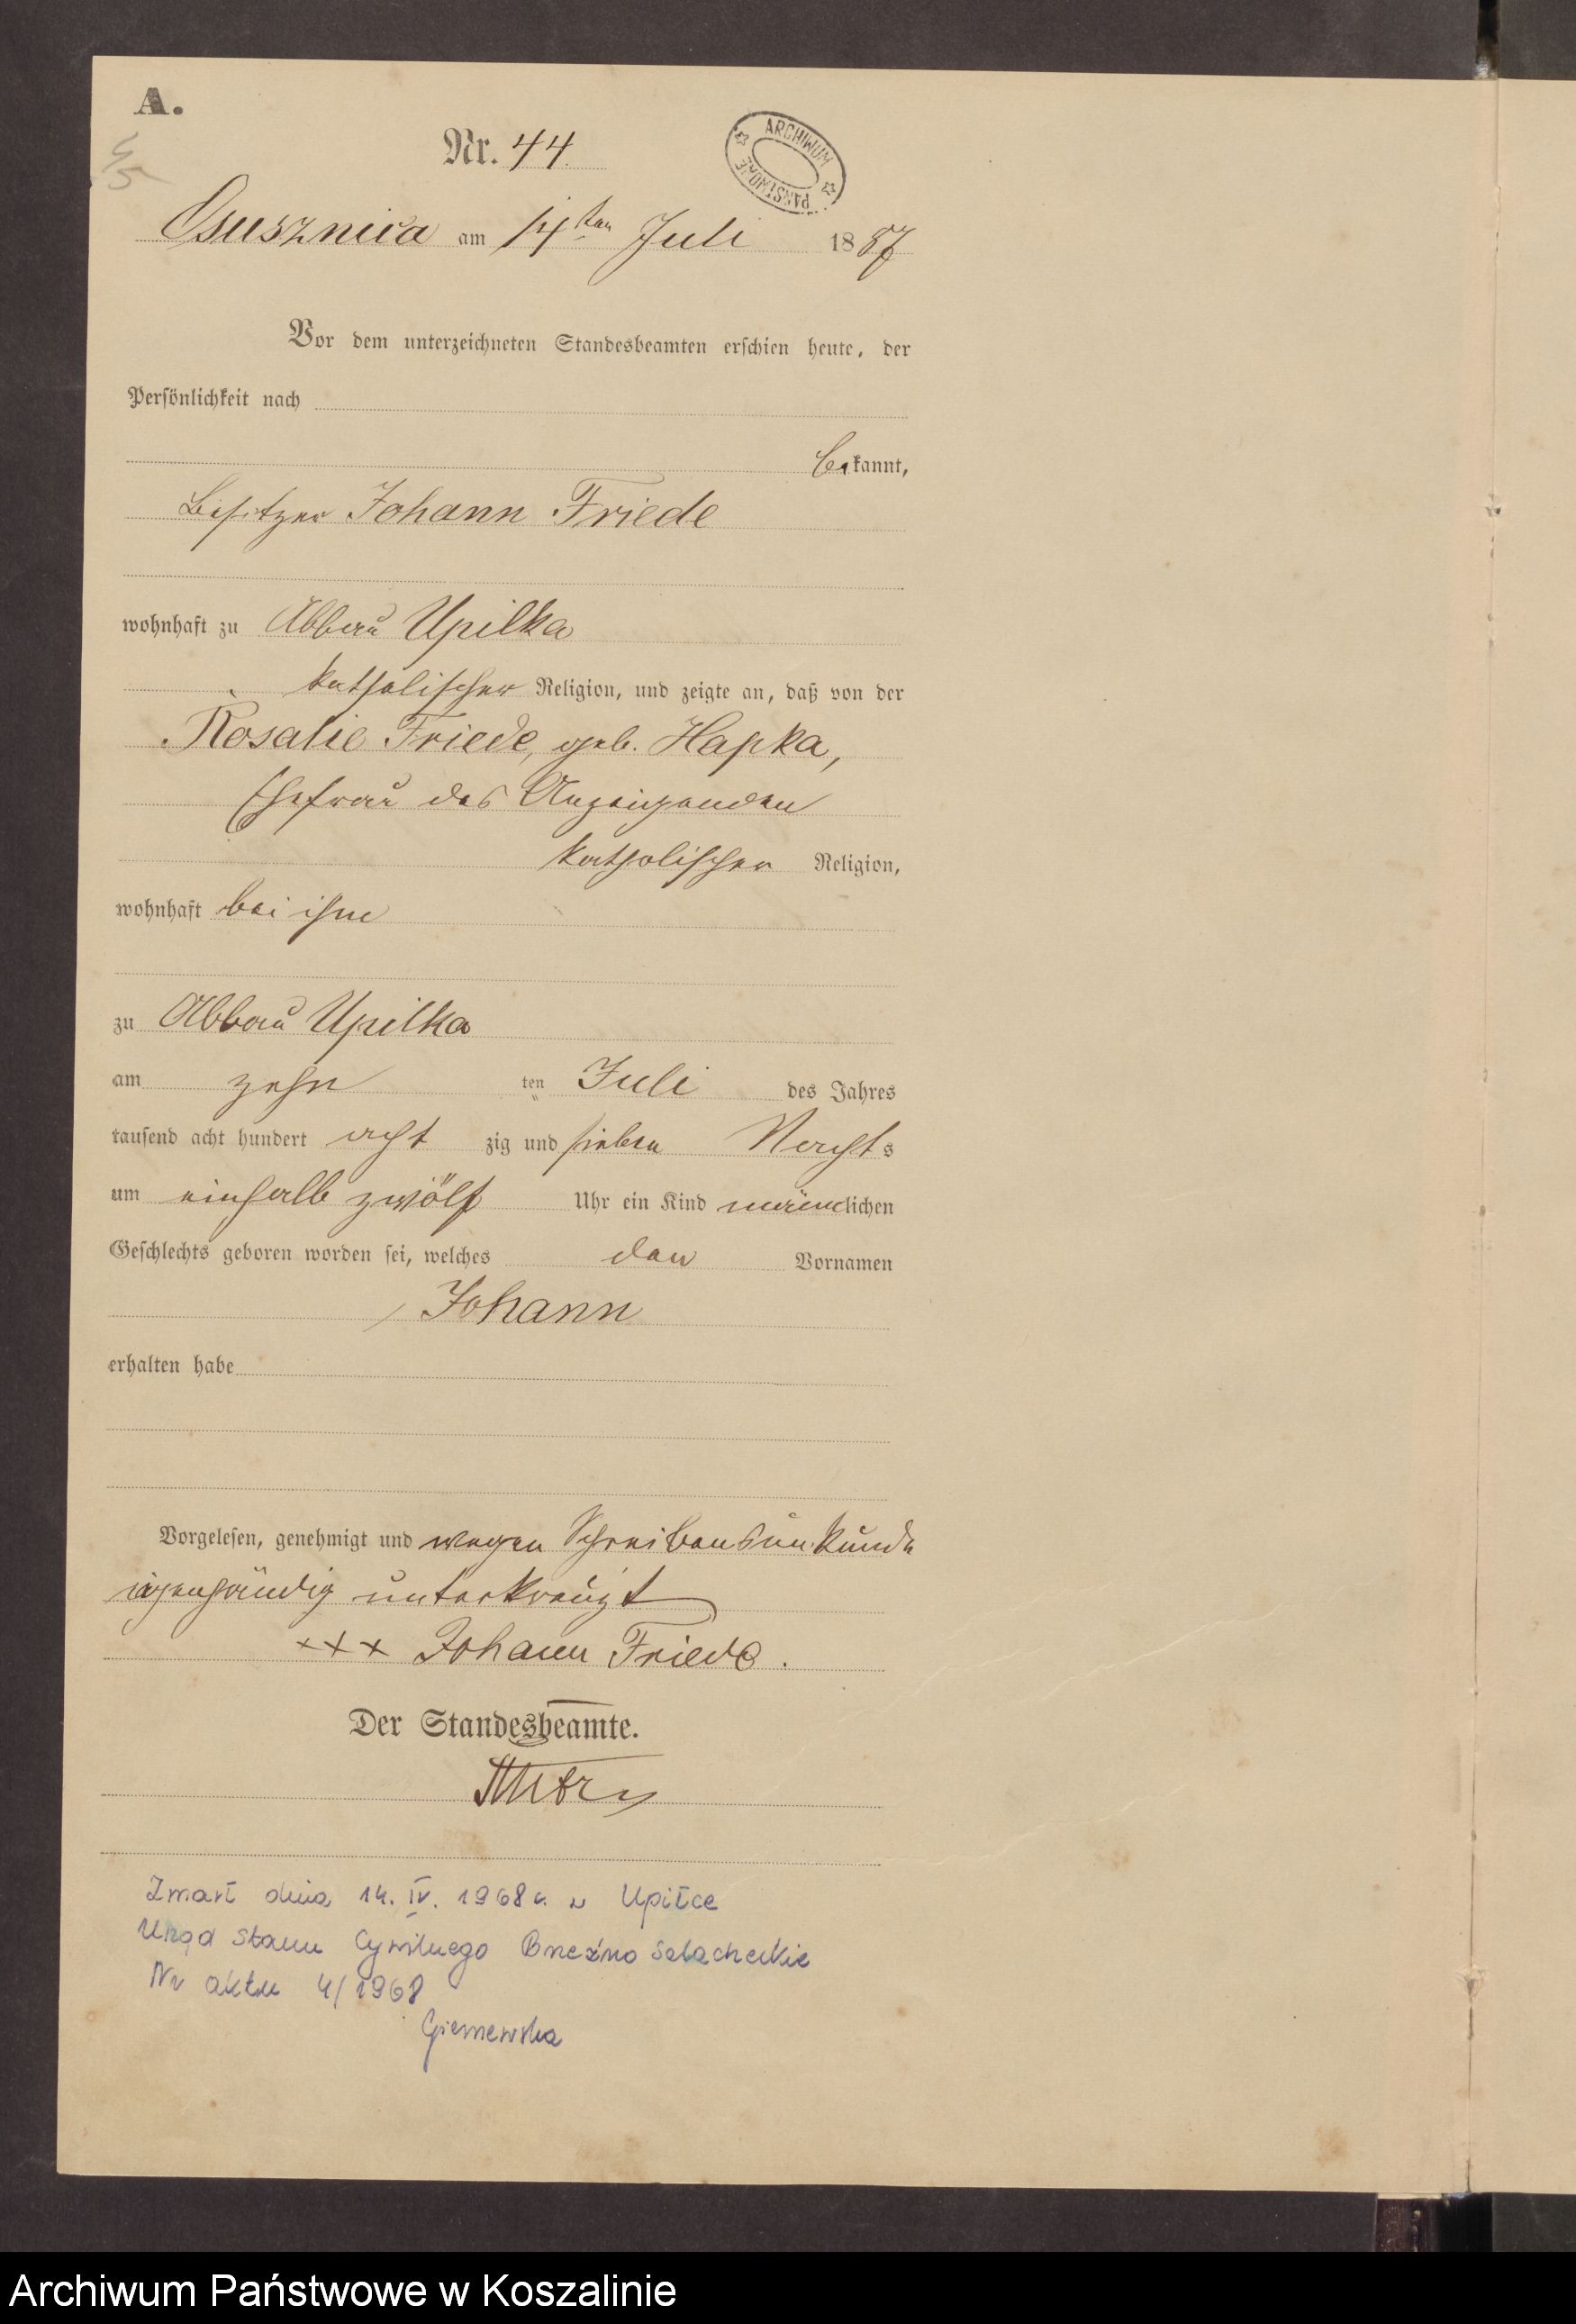 A.
Nr. 44.
ARCHIWUM PAŃSTWOWE
Osusznica am 14ten Juli 1887
Vor dem unterzeichneten Standesbeamten erschien heute, der
Persönlichkeit nach
bekannt,
Besitzer Johann Friede
wohnhaft zu Abbau Upilka
katholischer Religion, und zeigte an, daß von der
Rosalie Friede, geb. Hapka,
Ehefrau des Anzeigenden
katholischer Religion,
wohnhaft bei ihm
zu Abbau Upilka
am zehn ten Juli des Jahres
tausend acht hundert acht zig und sieben Nachts
um einhalb zwölf Uhr ein Kind männlichen
Geschlechts geboren worden sei, welches den Vornamen
Johann
erhalten habe
Vorgelesen, genehmigt und wegen Schreibensunkunde
eigenhändig unterkreuzt
+++ Johann Friede.
Der Standesbeamte.
Zmarł dnia 14. IV. 1968 r. w Upiłce
Urząd Stanu Cywilnego Brzeźno Szlacheckie
Nr aktu 4/1968
Archiwum Państwowe w Koszalinie